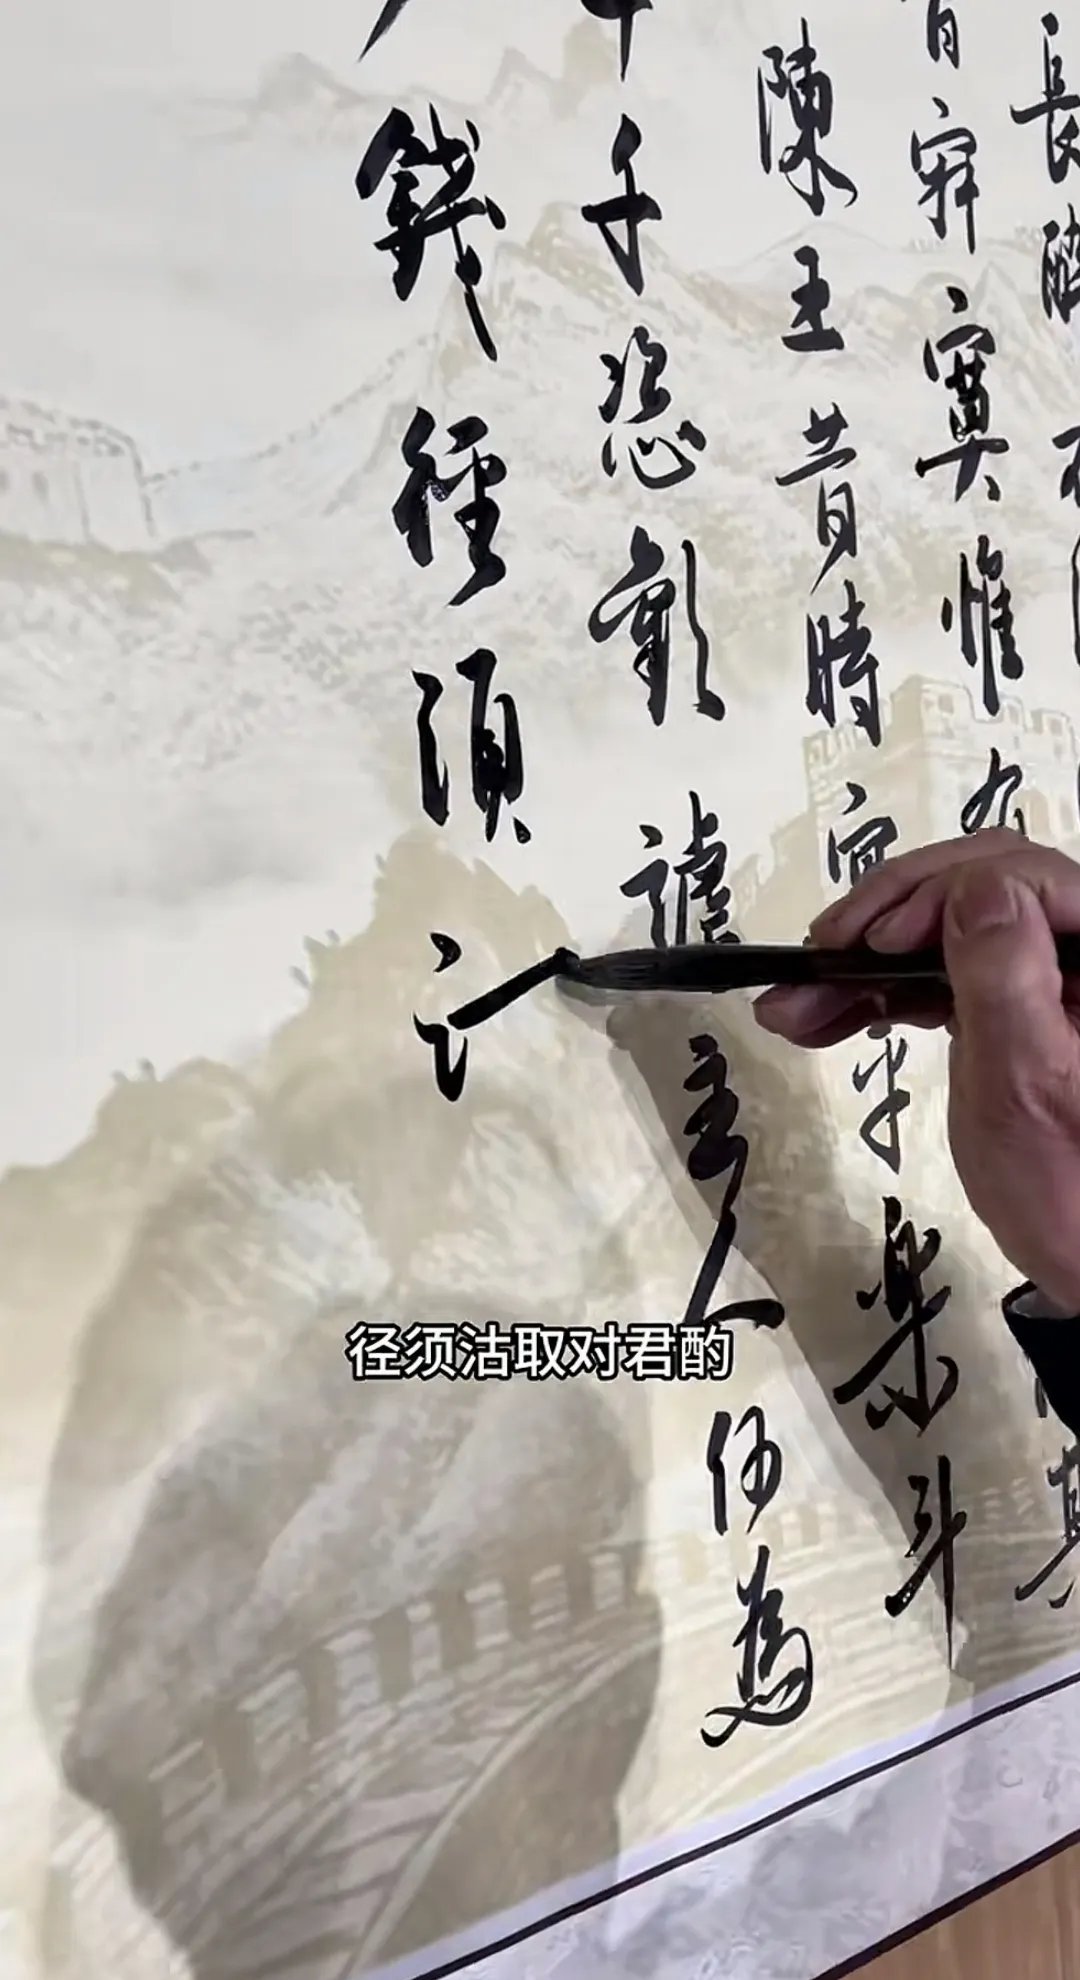 長醉
皆寂寞惟有
陳王昔時宴平樂斗
十千恣歡謔主人何為
錢徑須
径须沽取对君酌